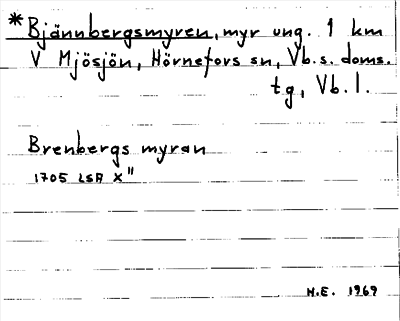 *Bjännbergsmyren, myr ung. 1 km
V Mjösjön, Hörnefors sn, Vb.s. doms.
t.g, Vb.l.
Brenbergs myran
1705 LSA X"
H.E. 1969